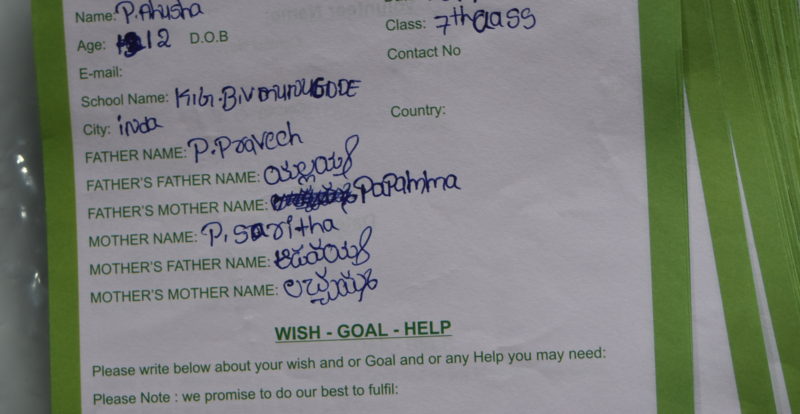 Name: P. Anusha
Class: 7th class
Age: 12 D.O.B
Contact No
E-mail:
School Name:
City: inda
Country:
FATHER NAME: P. Pravech
FATHER'S FATHER NAME:
FATHER'S MOTHER NAME: Papamma
MOTHER NAME: P. Saritha
MOTHER'S FATHER NAME:
MOTHER'S MOTHER NAME:
WISH - GOAL - HELP
Please write below about your wish and or Goal and or any Help you may need:
Please Note : we promise to do our best to fulfil: